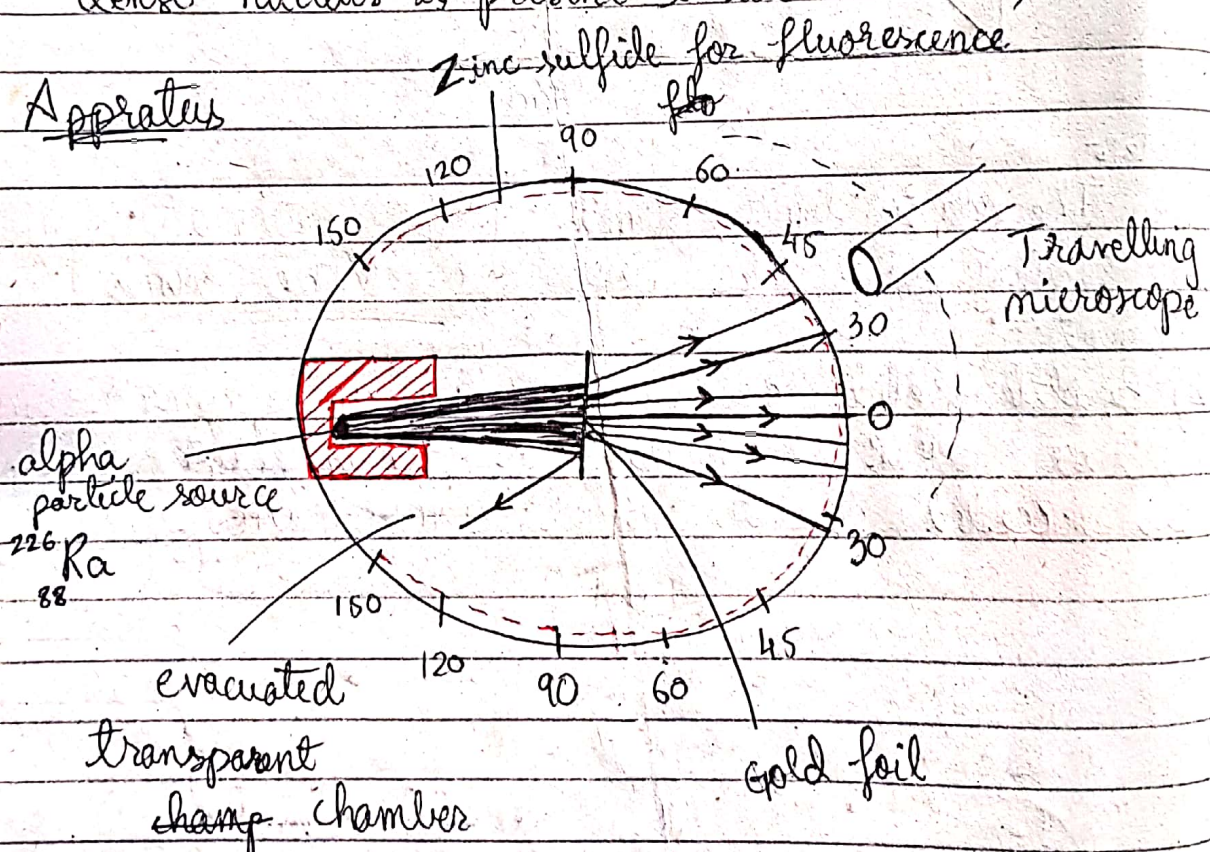 Zinc sulfide for fluorescence
Appratus
90
120
60
150
45
Travelling
microscope
30
0
alpha
particle source
226
Ra
88
30
150
120
90
60
45
evacuated
transparant
chamber
Gold foil